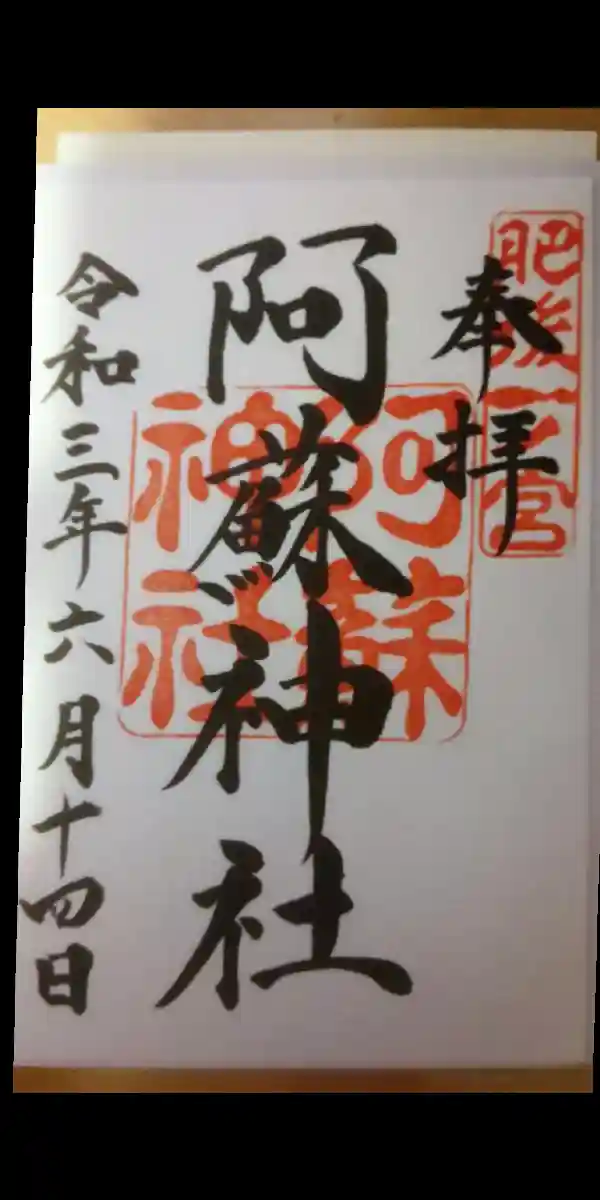 肥後一之宮
奉拝
阿蘇神社
阿蘇神社
令和三年六月十四日